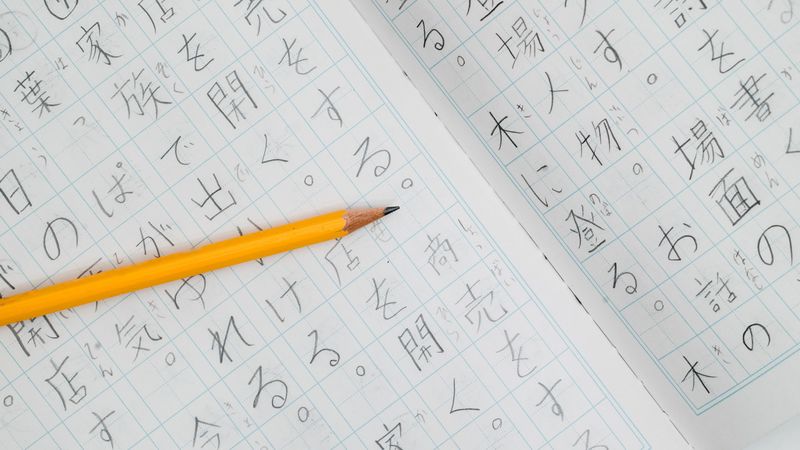 話を書く
す。場面の
登場人物。お話の
る。木に登る。木
売をする。商売をする
店を開く。店を開く。
家族で出ける。家
葉っぱがゆれる。
日の天気。今
が開店す